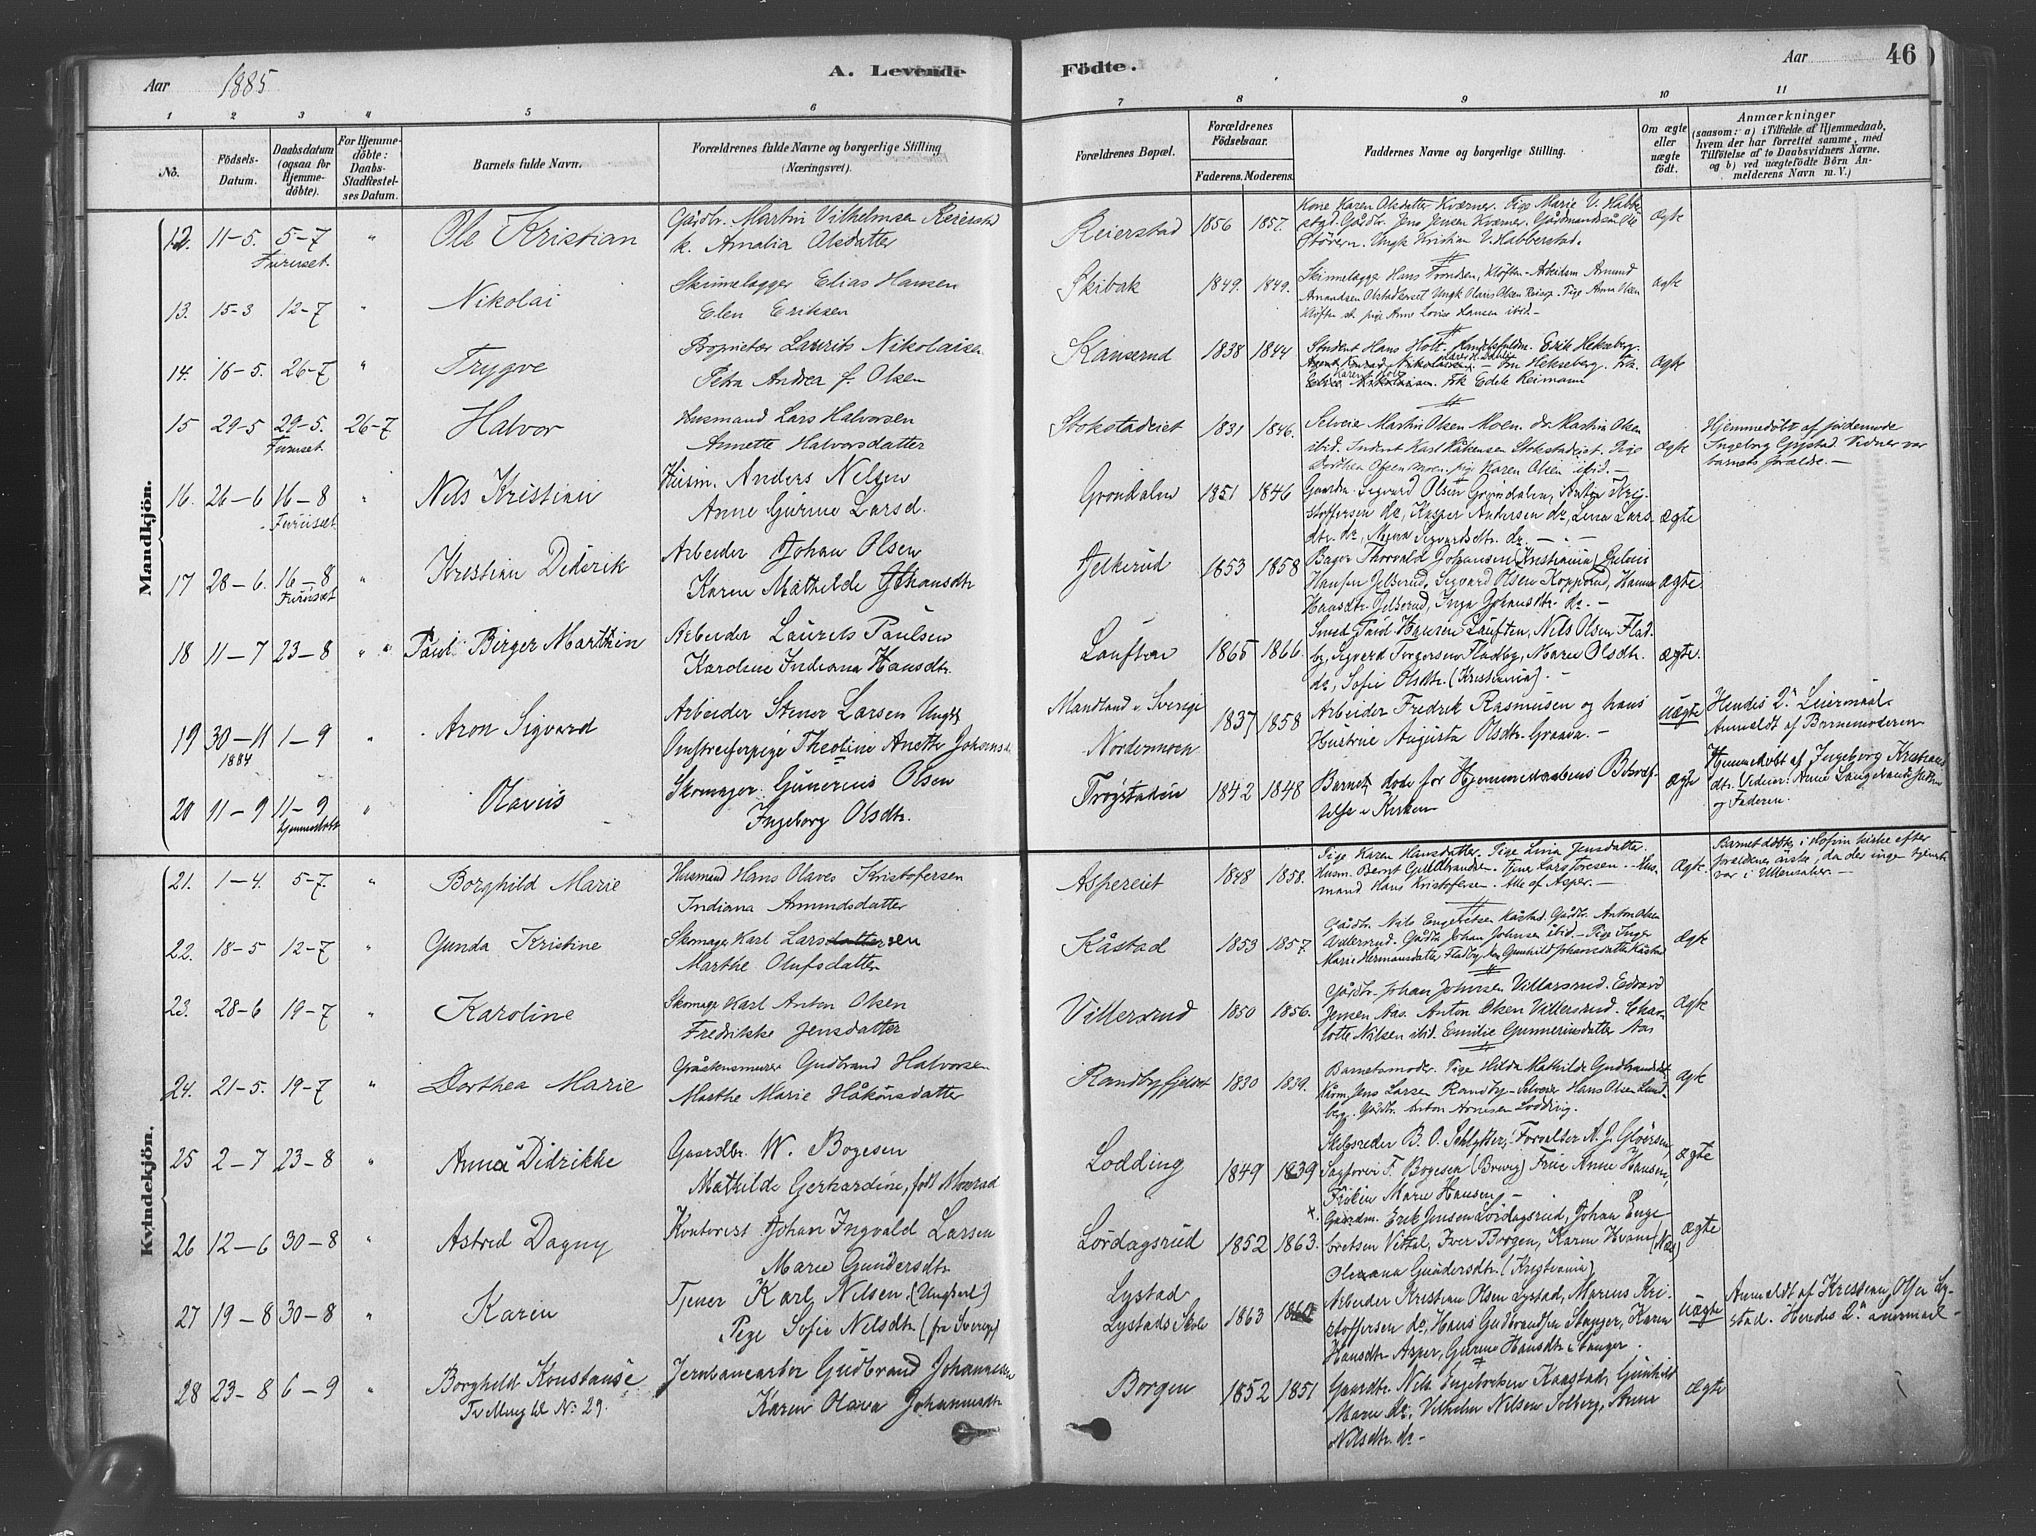 Aar 1885
A. Levende Födte.
Aar 46
1 2 3 4 5 6 7 8 9 10 11
No.
Födsels-Datum.
Daabsdatum (ogsaa for Hjemme-döbte).
For Hjemme-döbte: Daabs-Stadfæstel-ses Datum.
Barnets fulde Navn.
Forældrenes fulde Navne og borgerlige Stilling (Næringsvei).
Forældrenes Bopæl.
Forældrenes Födselsaar. Faderens. Moderens.
Faddernes Navne og borgerlige Stilling.
Om ægte eller uægte födt.
Anmærkninger (saasom: a) i Tilfælde af Hjemmedaab, hvem der har forrettet samme, med Tilföielse af to Daabsvidners Navne. og b) ved uægtefödte Börn Anmelderens Navn m. V.)
Mandkjön.
12. 11-5. 5-7 Furuset. " Ole Kristian
Gårdbr. Martin Vilhelmsen Reierstad
k. Amalia Olsdatter
Reierstad 1856 1857.
Kone Karen Olsdatter Kværner. Pige Marie V. Habber-
stad. Gårdbr. Jens Jensen Kværner. Gårdmandssøn Ole
Støveren. Ungk Kristian V. Habberstad.
Ægte
13. 15-3 12-7 " Nikolai
Skinnelægger Elias Hansen
Elen Eriksen
Skibak 1849. 1849.
Skinnelægger Hans Trondsen, Kløften - Arbeidsm Amund
Amundsen Olstadkorset Ungk Olaris Olsen Pige Anna Olsen
Kløften st. pige Anne Lovise Hansen ibid. -
ægte
14. 16-5. 26-7 " Trygve
Proprietær Laurits Nikolaisen
Petra Andrea f. Olsen
Kanserud 1838 1844
Student Hans Holt. Handelsfuldm. Erik Hekseberg.
Agent Konrad Nikolaisen - Fru Hekseberg. Frk.
Nikolaisen. Frk Edele Reimann
ægte
15 29-5 29-5. Furuset. 26-7 Halvor
Husmand Lars Halvorsen
Annette Halvorsdatter
Stokstadeiet 1831 1846.
Selveier Martin Olsen Moen. do Martin Olsen
ibid. Karl Håkensen Stokstadeiet. Pige
Dorthea Olsen Moen. pige Karen Olsen ibid. -
ægte
Hjemmedöbt af jordemode
Ingeborg Grystad. Vidner var
barnets forældre. -
16. 26-6 16-8 Furuset. " Nels Kristian
Husm. Anders Nelsen
Anne Gurine Larsd.
Grondalen 1851 1846
Gaardm. Sigvard Olsen Grøndalen, Anton Kri-
stoffersen do, Kasper Andersen do, Lena Lars-
dtr. do, Mina Sigvardsdtr. do. -
ægte
17 28-6. 16-8 Furuset " Kristian Diderik
Arbeider Johan Olsen
Karen Mathilde Johansdtr
Jelkerud 1853 1858
Bager Thorvald Johansen (Kristiania) Julius
Hansen Jelkerud, Sigvard Olsen Kopperud, Hanna
Hansdtr. Jelkerud, Inga Johansdtr. do. -
ægte.
18 11-7 23-8 " " Paul Birger Marthin
Arbeider Laurits Paulsen
Karoline Indiana Hansdtr.
Lauften 1865 1866.
Smed Paul Hansen Lauften, Nils Olsen Flad-
by, Sigverd Torgersen Fladby, Maren Olsdtr.
do, Sofie Olsdtr. (Kristiania). -
ægte.
19 30-11 1884 1-9 " Aron Sigvard
Arbeider Stener Larsen Ungk
Omstreiferpige Theoline Anette Johansd.
Mandland i Sverige
Nordenmoen
1837 1858
Arbeider Fredrik Rasmusen og hans
Hustrue Augusta Olsdtr. Granda. -
uægte
Hendes 2n Leiermaal.
Anmeldt af Barnemoderen
20 11-9 11-9 hjemmedöbt " Olavus
Skomager Gunerius Olsen
Ingeborg Olsdtr.
Trøgstaden 1842 1848
Barnet døde før Hjemmedaabens Bekræf-
telse i Kirken
ægte
Hjemmedöbt af Ingeborg Kristians
dtr. Vidner: Anne
og Faderen.
Kvindekjön.
21. 1-4. 5-7. " Borghild Marie
Husmand Hans Olaves Kristofersen
Indiana Amundsdatter
Aspereiet 1848 1858.
Pige Karen Hansdatter. Pige Lina Jensdatter.
Husm. Bernt Gulbrandsen. Tjener Lars Toresen. - Hus-
mand Hans Kristofersen. Alle af Asper. -
Ægte.
Barnet døbt i Hovin kirke efter
forældrenes ønske, da der ingen tjeneste
var i Ullensaker. -
22. 18-5 12-7 " Gunda Kristine
Skomager Karl Larsdattersen
Marthe Olufsdatter
Kåstad 1853 1857.
Gårdbr. Nils Engebretsen Kåstad. Gårdbr. Anton Olsen
Villersrud. Gårdbr. Johan Johnsen ibid. - Pige Inger
Marie Hermansdatter Fladby, Gunhild Johansdatter Kåstad
Ægte
23. 28-6 19-7 " Karoline
Skomager Karl Anton Olsen
Fredrikke Jensdatter
Villersrud 1850 1856.
Gårdbr. Johan Johnsen Villersrud. Edvard
Jensen Aas. Anton Olsen Villersrud. Char-
lotte Nilsen ibid. Emilie Gunneriusdatter Aas
Ægte
24. 21-5. 19-7 " Dorthea Marie
Gråstensmurer Gudbrand Halvorsen
Marthe Marie Håkonsdatter
Randbyfjelset 1830 1839.
Barnets moder. Pige Hilda Mathilde Gudbrandsdtr
Jens Larsen Randby - Selveier Hans Olsen Lund-
berg. Gårdbr. Anton Arnesen Lodding.
ægte
25 2-7 23-8 " Anna Didrikke
Gaardbr. W. Bogesen
Mathilde Gerhardine, født Monrad
Lodding 1849 1839
Skibsreder B. O. Schlytter, Forvalter A. J. Gløersen,
Sagfører F. Bogesen (Brevig) Frue Anne Hansen,
Frøken Marie Hansen, -
ægte
26 12-6 30-8 " Astrid Dagny
Kontorist Johan Ingvald Larsen
Marie Gundersdtr.
Lördagsrud 1852 1863.
Gaardm. Erik Jensen Lördagsrud, Johan Enge-
bretsen Vittal, Iver Borgen, Karen Hvam (Næs)
Gundersdtr. (Kristiania)
ægte
27 19-8 30-8 " Karen
Tjener Karl Nilsen (Ungkarl)
Pige Sofie Nelsdtr. (fra Sverige)
Lystad
Lystads Skole
1863 1860
Arbeider Kristian Olsen Lystad, Marius Kri-
stoffersen do, Hans Gudbrandsen Stanger, Karen
Hansdtr Asper, Gurine Hansdtr Stanger. -
uægte
Anmeldt af Kristian Olsen Ly-
stad. Hendes 2n Leiermaal
28 23-8 6-9 " Borghild Konstanse
Tvilling til No 29.
Jernbanearbr Gudbrand Johannesen
Karen Olava Johannesdtr
Borgen 1852 1851
Gaardbr. Nels Engebretsen Kaastad, Gunhild
Marie do, Vilhelm Nilsen Solberg, Anne
Nilsdtr. do -
ægte